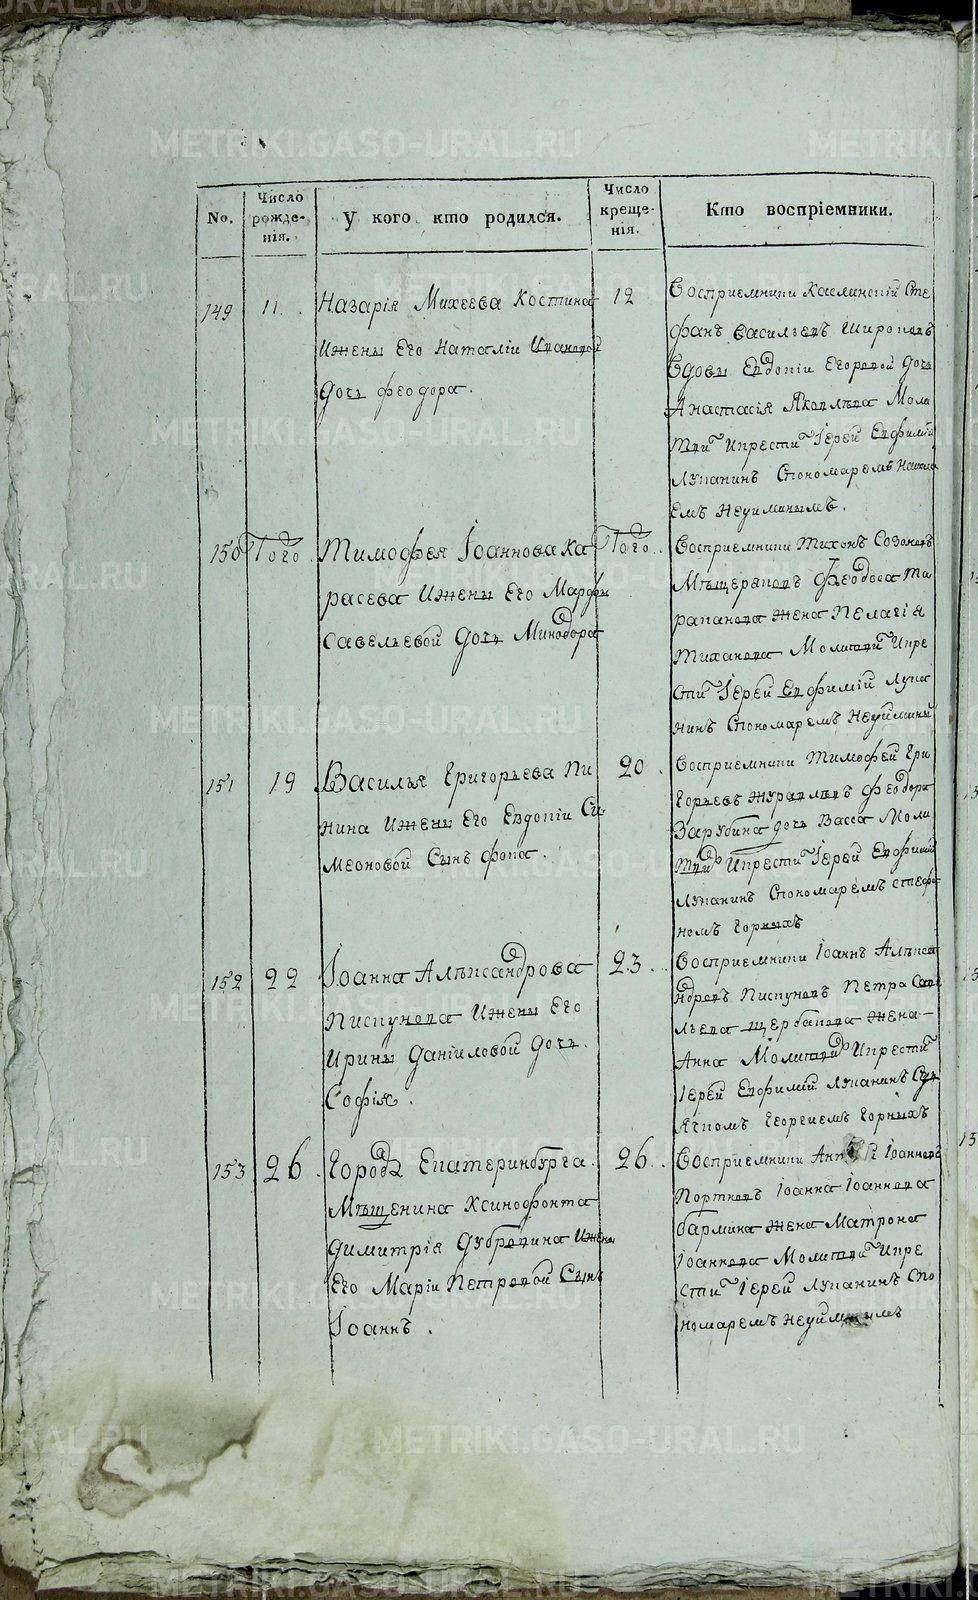 No.
Число рожде-нія.
У кого кто родился.
Число креще-нія.
Кто воспріемники.
149
11.
Назарія Михеева Костина
Ижены Его Наталіи Ивановой
Дочь Феодора.
12
Восприемники Каслинскій Сте
фанъ Васильевъ Широковъ
Вдовы Евдокіи Егоровой Дочь
Анастасія Яковлева Моли
твил Икрестил Іерей Евфимій
Лупанинъ Спономаремъ
емъ Неуйминымъ.
150
Того.
Тимофея Іоаннова Ка
расева Ижены Его Марфы
Савельевой Дочь Минодора
Того.
Восприемники Тихонъ Созоновъ
Мѣщеряковъ Феодоса Та
раканова Жена Пелагія
Тиханова Молитвил Икре
стил Іерей Евфимій Лупа
нинъ Спономаремъ Неуйминым
151
19
Василья Григорьева Пи
нина Ижены Его Евдокіи Си
меоновой Сынъ Фока.
20.
Восприемники Тимофей Гри
горьевъ Журавлевъ Феодора
Зарубина дочь Васса Моли
твил Икрестил Іерей Евфимій
Лупанинъ Спономаремъ Стефа
номъ Горныхъ
152
22
Іоанна Алѣксандрова
Пискунова Ижены Его
Ирины Даніиловой Дочь.
Софія.
23.
Восприемники Іоаннъ Алѣкса
ндровъ Пискуновъ Петра Саве
льева Щербакова Жена
Анна Молитвил Икрестил
Іерей Евфимій Лупанинъ Сдь
ячкомъ Георгіемъ Горныхъ
153
26.
Города Екатеринбурга
Мѣщенина Ксинофонта
Димитрія Дубровина Ижены
Его Маріи Петровой Сынъ
Іоаннъ.
26.
Восприемники Іоанновъ
Портновъ Іоанна Іоаннова
Бармина жена Матрона
Іоаннова Молитвил Икре
стил Іерей Лупанинъ Спо
номаремъ Неуйминымъ
METRIKI.GASO-URAL.RU